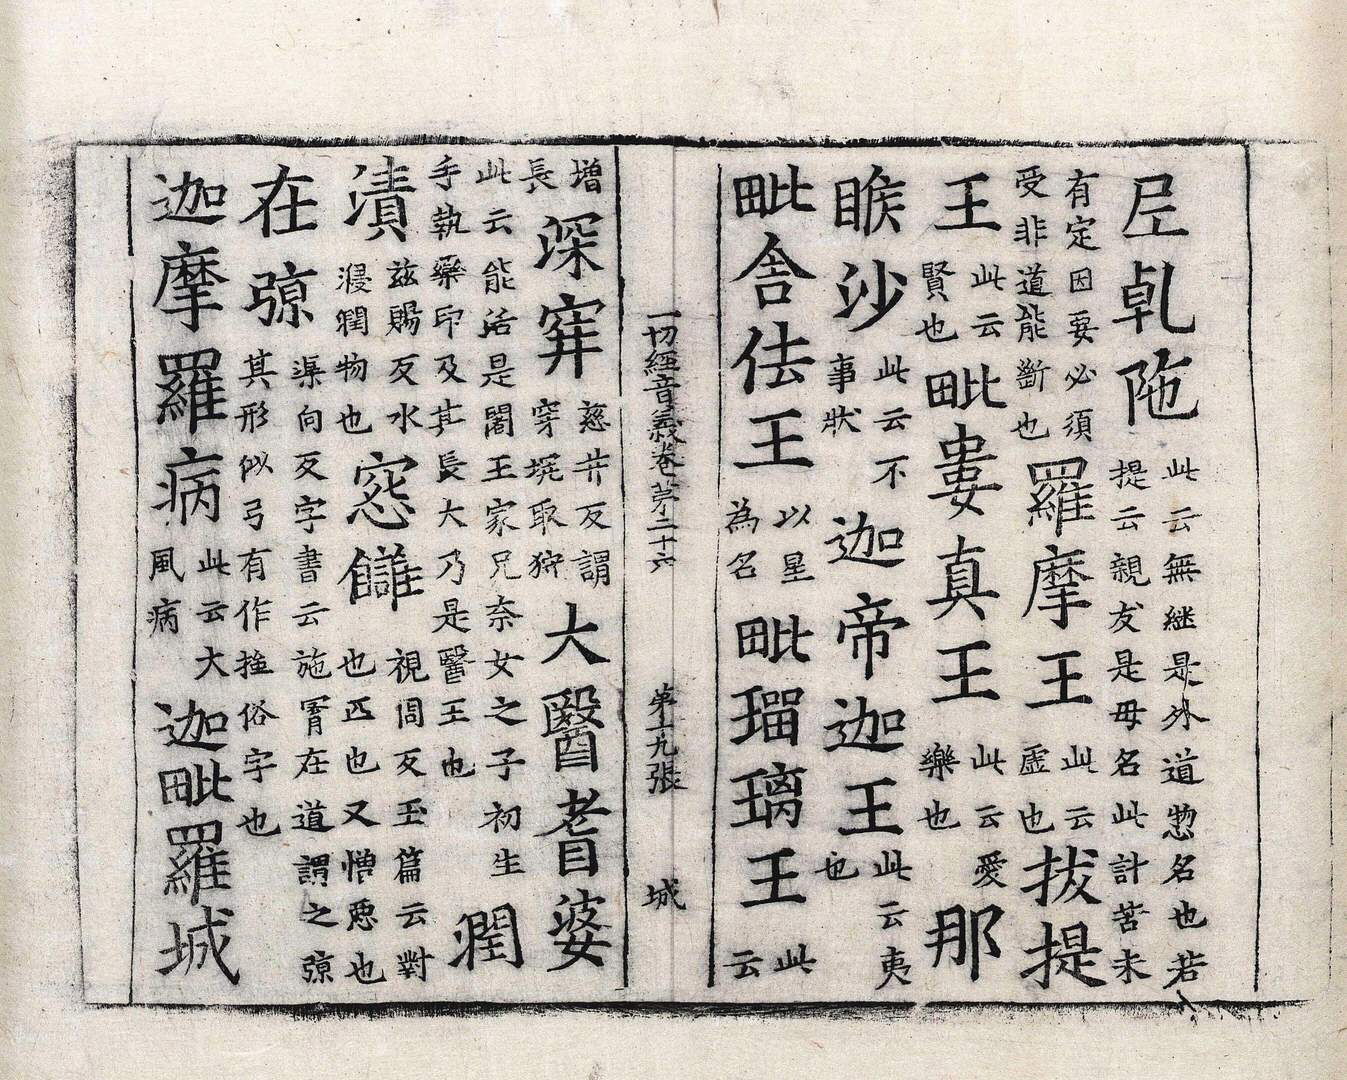 尼乹陁此云無継是外道惣名也若提云親友是母名此計苦未
有定因要必須受非道能斷也羅摩王此云虛也拔提
王此云賢也毗婁真王此云愛樂也那
睺沙此云不事狀迦帝迦王此云夷也
毗舍佉王以星為名毗瑠璃王此云
一切經音義卷苐二十六 第十九張 城
增長深穽慈井反謂穿坑取狩大醫耆婆
此云能活是闍王家兄奈女之子初生手執藥印及其長大乃是醫王也潤
漬兹賜反水濅潤物也窓讎視周反玉篇云對也匹也又憎惡也
在弶渠向反字書云施罥在道謂之弶其形似弓有作俗字也
迦摩羅病此云大風病迦毗羅城